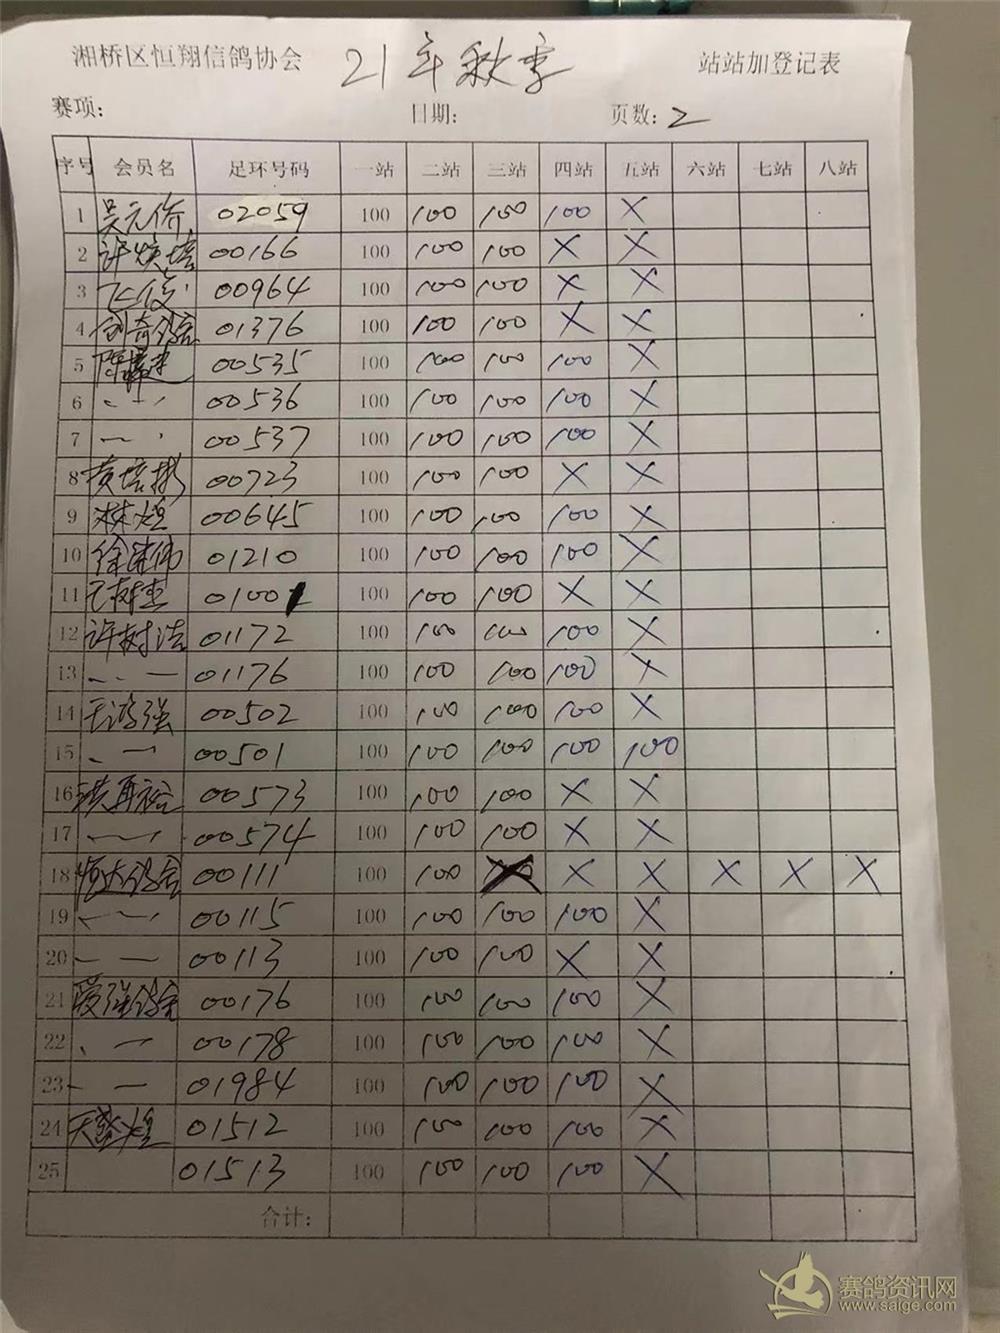 湘桥区恒翔信鸽协会 21年秋季 站站加登记表
赛项: 日期: 页数: 2
序号 会员名 足环号码 一站 二站 三站 四站 五站 六站 七站 八站
1 吴元侨 02059 100 100 100 100 X
2 许焕培 00166 100 100 100 X X
3 00964 100 100 100 X X
4 创奇鸽舍 01376 100 100 100 X X
5 00535 100 100 100 100 X
6 00536 100 100 100 100 X
7 00537 100 100 100 100 X
8 黄培彬 00723 100 100 100 X X
9 林煌 00645 100 100 100 100 X
10 01210 100 100 100 100 X
11 100 100 100 X X
12 许树浩 01172 100 100 100 100 X
13 01176 100 100 100 100 X
14 00502 100 100 100 100 X
15 00501 100 100 100 100 100
16 洪再裕 00573 100 100 100 X X
17 00574 100 100 100 X X
18 恒达鸽舍 00111 100 100 X X X X X
19 00115 100 100 100 100 X
20 00113 100 100 100 X X
21 爱强鸽舍 00176 100 100 100 100 X
22 00178 100 100 100 100 X
23 01984 100 100 100 100 X
24 01512 100 100 100 100 X
25 01513 100 100 100 100 X
合计:
赛鸽资讯网
www.saige.com